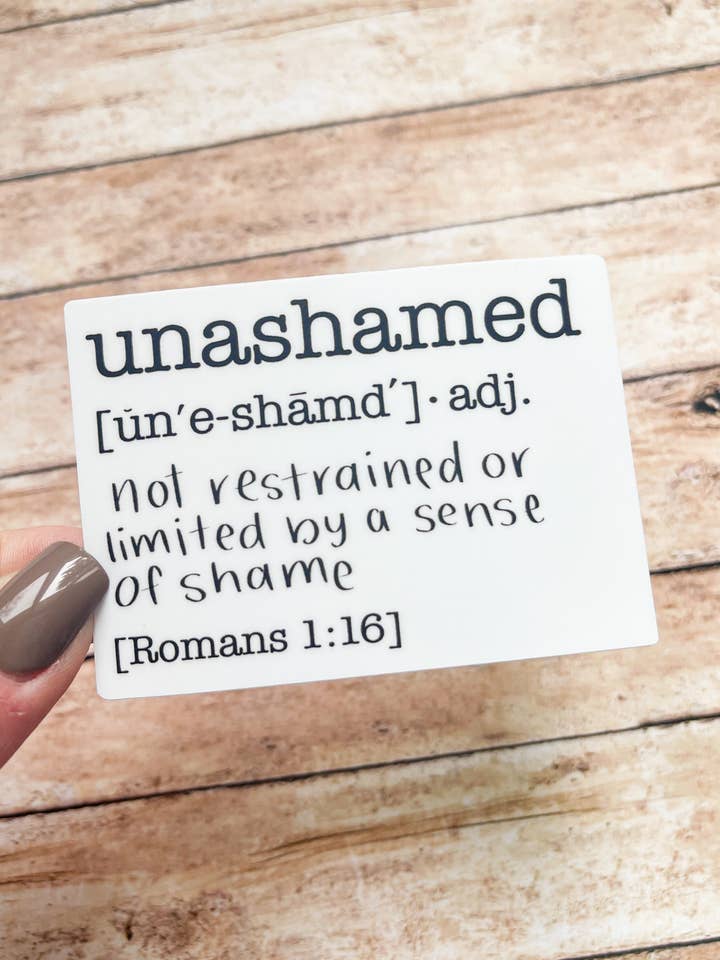 unashamed
[ŭn′e-shāmd′]·adj.
not restrained or
limited by a sense
of shame
[Romans 1:16]